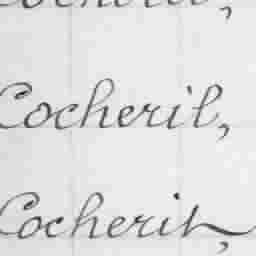 Cocheril,
Cocherit,